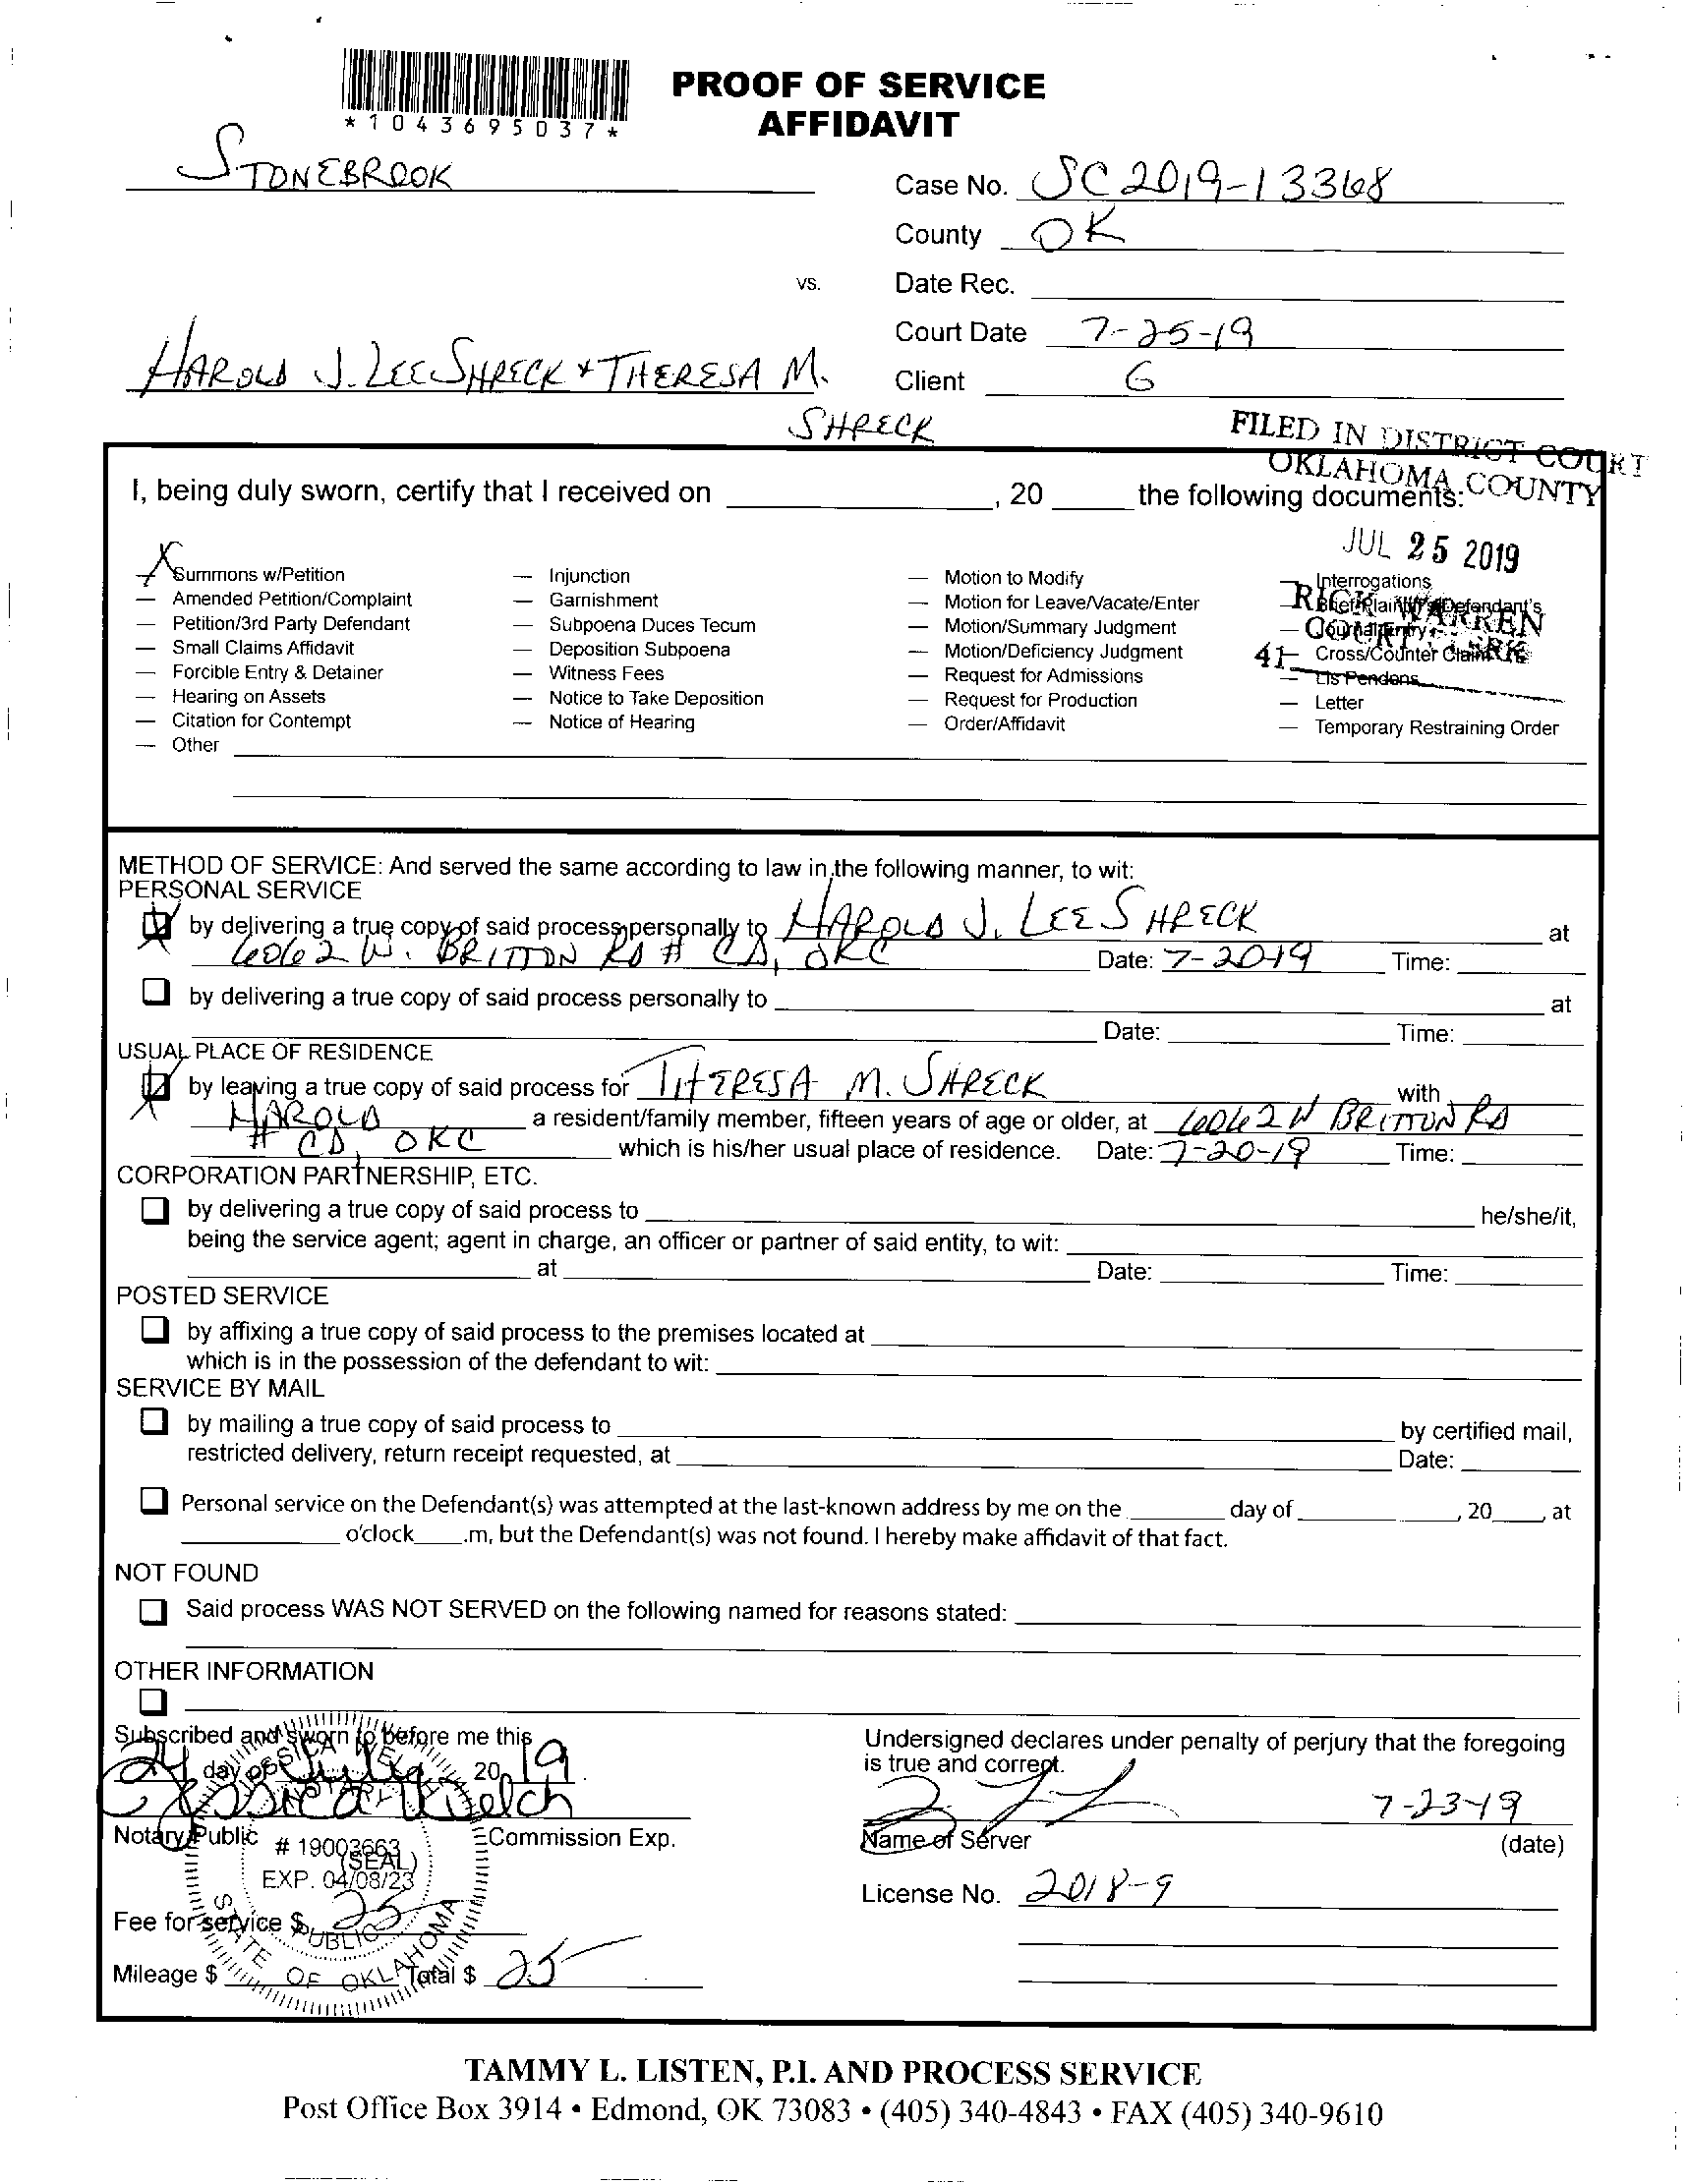 PROOF OF SERVICE
AFFIDAVIT
*1043695037*
STONEBROOK
Case No. SC 2019-13368
County OK
vs.
Date Rec.
Court Date 7-25-19
HAROLD J. LEE SHRECK & THERESA M.
SHRECK
Client G
FILED IN DISTRICT COURT
OKLAHOMA COUNTY
JUL 25 2019
RICK WARREN
COURT CLERK
41
I, being duly sworn, certify that I received on ____, 20 ____ the following documents:
X Summons w/Petition
— Amended Petition/Complaint
— Petition/3rd Party Defendant
— Small Claims Affidavit
— Forcible Entry & Detainer
— Hearing on Assets
— Citation for Contempt
— Other
— Injunction
— Garnishment
— Subpoena Duces Tecum
— Deposition Subpoena
— Witness Fees
— Notice to Take Deposition
— Notice of Hearing
— Motion to Modify
— Motion for Leave/Vacate/Enter
— Motion/Summary Judgment
— Motion/Deficiency Judgment
— Request for Admissions
— Request for Production
— Order/Affidavit
— Interrogations
— Brief/Plaintiff's/Defendant's
— Journal Entry
— Cross/Counter Claim
— Lis Pendens
— Letter
— Temporary Restraining Order
METHOD OF SERVICE: And served the same according to law in the following manner, to wit:
PERSONAL SERVICE
by delivering a true copy of said process personally to HAROLD J. LEE SHRECK at
6062 W. BRITTON RD # CD, OKC Date: 7-20-19 Time:
by delivering a true copy of said process personally to at
Date: Time:
USUAL PLACE OF RESIDENCE
by leaving a true copy of said process for THERESA M. SHRECK with
HAROLD a resident/family member, fifteen years of age or older, at 6062 W BRITTON RD
# CD, OKC which is his/her usual place of residence. Date: 7-20-19 Time:
CORPORATION PARTNERSHIP, ETC.
by delivering a true copy of said process to he/she/it,
being the service agent; agent in charge, an officer or partner of said entity, to wit:
at Date: Time:
POSTED SERVICE
by affixing a true copy of said process to the premises located at
which is in the possession of the defendant to wit:
SERVICE BY MAIL
by mailing a true copy of said process to by certified mail,
restricted delivery, return receipt requested, at Date:
Personal service on the Defendant(s) was attempted at the last-known address by me on the ____ day of ____, 20____, at
____ o'clock____.m, but the Defendant(s) was not found. I hereby make affidavit of that fact.
NOT FOUND
Said process WAS NOT SERVED on the following named for reasons stated:
OTHER INFORMATION
Subscribed and sworn to before me this
24 day of July 20 19
Jessica Welch
Notary Public Commission Exp.
(SEAL)
JESSICA WELCH
NOTARY
# 19003663
EXP. 04/08/23
PUBLIC
STATE OF OKLAHOMA
Fee for service $ 25
Mileage $ Total $ 25
Undersigned declares under penalty of perjury that the foregoing
is true and correct.
7-23-19
Name of Server (date)
License No. 2018-9
TAMMY L. LISTEN, P.I. AND PROCESS SERVICE
Post Office Box 3914 • Edmond, OK 73083 • (405) 340-4843 • FAX (405) 340-9610